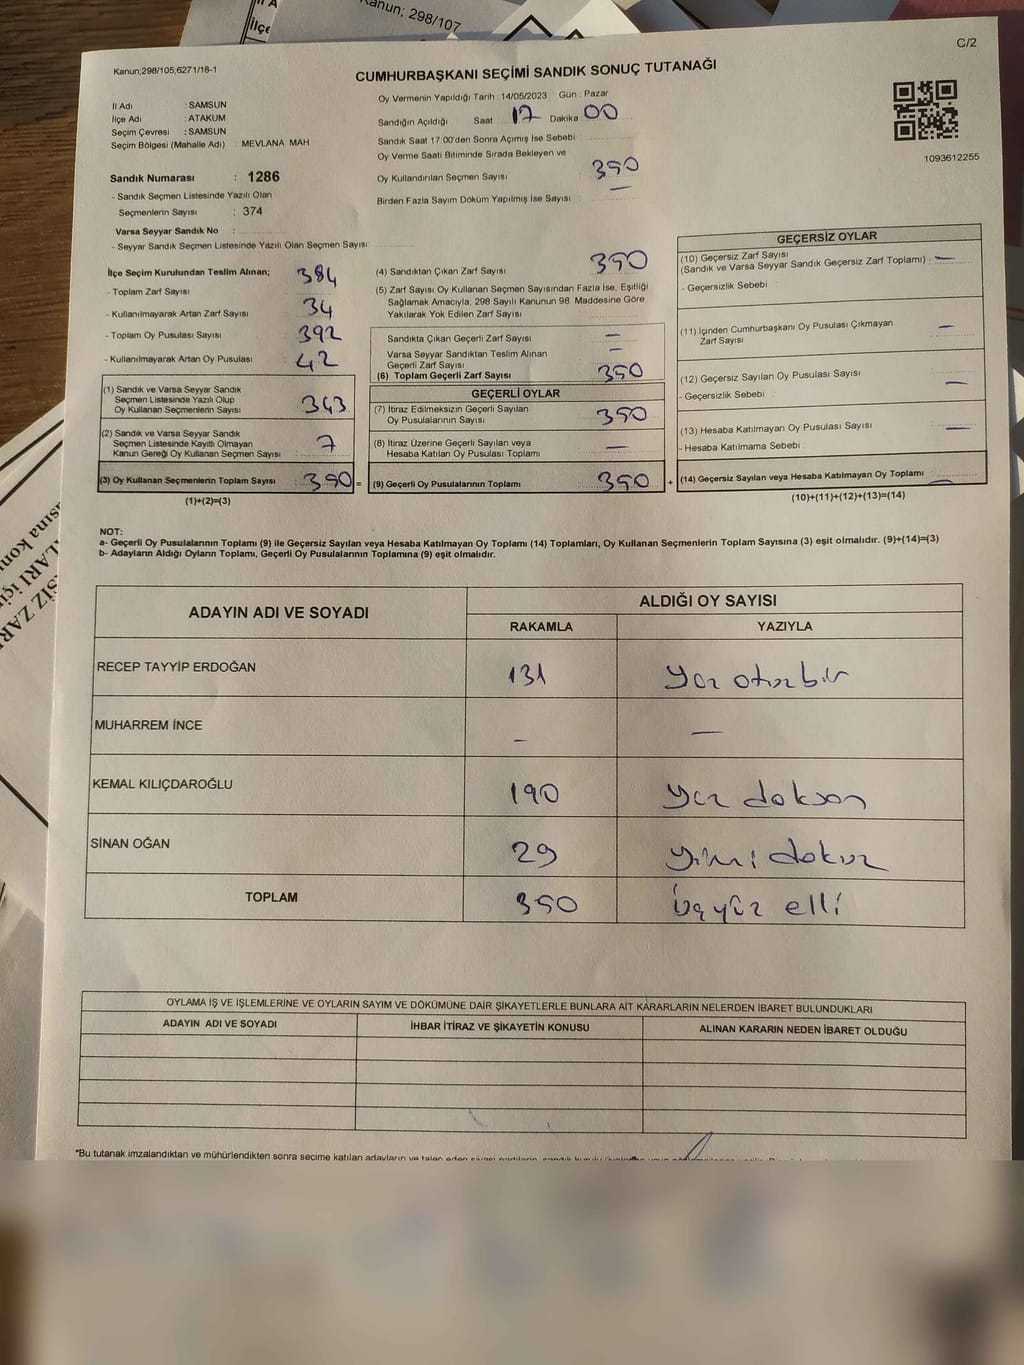 Kanun; 298/107
İlçe
C/2
Kanun;298/105;6271/18-1
CUMHURBAŞKANI SEÇİMİ SANDIK SONUÇ TUTANAĞI
İl Adı : SAMSUN
İlçe Adı : ATAKUM
Seçim Çevresi : SAMSUN
Seçim Bölgesi (Mahalle Adı) MEVLANA MAH
Oy Vermenin Yapıldığı Tarih : 14/05/2023 Gün : Pazar
Sandığın Açıldığı Saat 17 Dakika 00
Sandık Saat 17:00'den Sonra Açımış İse Sebebi
Oy Verme Saati Bitiminde Sırada Bekleyen ve
Oy Kullandırılan Seçmen Sayısı 350
Birden Fazla Sayım Döküm Yapılmış İse Sayısı : —
1093612255
Sandık Numarası : 1286
- Sandık Seçmen Listesinde Yazılı Olan
Seçmenlerin Sayısı : 374
Varsa Seyyar Sandık No :
- Seyyar Sandık Seçmen Listesinde Yazılı Olan Seçmen Sayısı
İlçe Seçim Kurulundan Teslim Alınan;
- Toplam Zarf Sayısı 384
- Kullanılmayarak Artan Zarf Sayısı 34
- Toplam Oy Pusulası Sayısı 392
- Kullanılmayarak Artan Oy Pusulası 42
(1) Sandık ve Varsa Seyyar Sandık
Seçmen Listesinde Yazılı Olup
Oy Kullanan Seçmenlerin Sayısı 343
(2) Sandık ve Varsa Seyyar Sandık
Seçmen Listesinde Kayıtlı Olmayan
Kanun Gereği Oy Kullanan Seçmen Sayısı 7
(3) Oy Kullanan Seçmenlerin Toplam Sayısı 350 =
(1)+(2)=(3)
(4) Sandıktan Çıkan Zarf Sayısı 350
(5) Zarf Sayısı Oy Kullanan Seçmen Sayısından Fazla İse, Eşitliği
Sağlamak Amacıyla, 298 Sayılı Kanunun 98. Maddesine Göre
Yakılarak Yok Edilen Zarf Sayısı
Sandıkta Çıkan Geçerli Zarf Sayısı —
Varsa Seyyar Sandıktan Teslim Alınan
Geçerli Zarf Sayısı —
(6) Toplam Geçerli Zarf Sayısı 350
GEÇERLİ OYLAR
(7) İtiraz Edilmeksizin Geçerli Sayılan
Oy Pusulalarının Sayısı 350
(8) İtiraz Üzerine Geçerli Sayılan veya
Hesaba Katılan Oy Pusulası Toplamı —
(9) Geçerli Oy Pusulalarının Toplamı 350 +
GEÇERSİZ OYLAR
(10) Geçersiz Zarf Sayısı
(Sandık ve Varsa Seyyar Sandık Geçersiz Zarf Toplamı) : —
- Geçersizlik Sebebi :
(11) İçinden Cumhurbaşkanı Oy Pusulası Çıkmayan
Zarf Sayısı —
(12) Geçersiz Sayılan Oy Pusulası Sayısı —
- Geçersizlik Sebebi :
(13) Hesaba Katılmayan Oy Pusulası Sayısı —
- Hesaba Katılmama Sebebi :
(14) Geçersiz Sayılan veya Hesaba Katılmayan Oy Toplamı —
(10)+(11)+(12)+(13)=(14)
NOT:
a- Geçerli Oy Pusulalarının Toplamı (9) ile Geçersiz Sayılan veya Hesaba Katılmayan Oy Toplamı (14) Toplamları, Oy Kullanan Seçmenlerin Toplam Sayısına (3) eşit olmalıdır. (9)+(14)=(3)
b- Adayların Aldığı Oyların Toplamı, Geçerli Oy Pusulalarının Toplamına (9) eşit olmalıdır.
ADAYIN ADI VE SOYADI ALDIĞI OY SAYISI
RAKAMLA YAZIYLA
RECEP TAYYİP ERDOĞAN 131 Yüz otuz bir
MUHARREM İNCE – —
KEMAL KILIÇDAROĞLU 190 Yüz doksan
SİNAN OĞAN 29 Yirmi dokuz
TOPLAM 350 üçyüz elli
OYLAMA İŞ VE İŞLEMLERİNE VE OYLARIN SAYIM VE DÖKÜMÜNE DAİR ŞİKAYETLERLE BUNLARA AİT KARARLARIN NELERDEN İBARET BULUNDUKLARI
ADAYIN ADI VE SOYADI İHBAR İTİRAZ VE ŞİKAYETİN KONUSU ALINAN KARARIN NEDEN İBARET OLDUĞU
*Bu tutanak imzalandıktan ve mühürlendikten sonra seçime katılan adayların ve talep eden siyasi partilerin, sandık kurulu